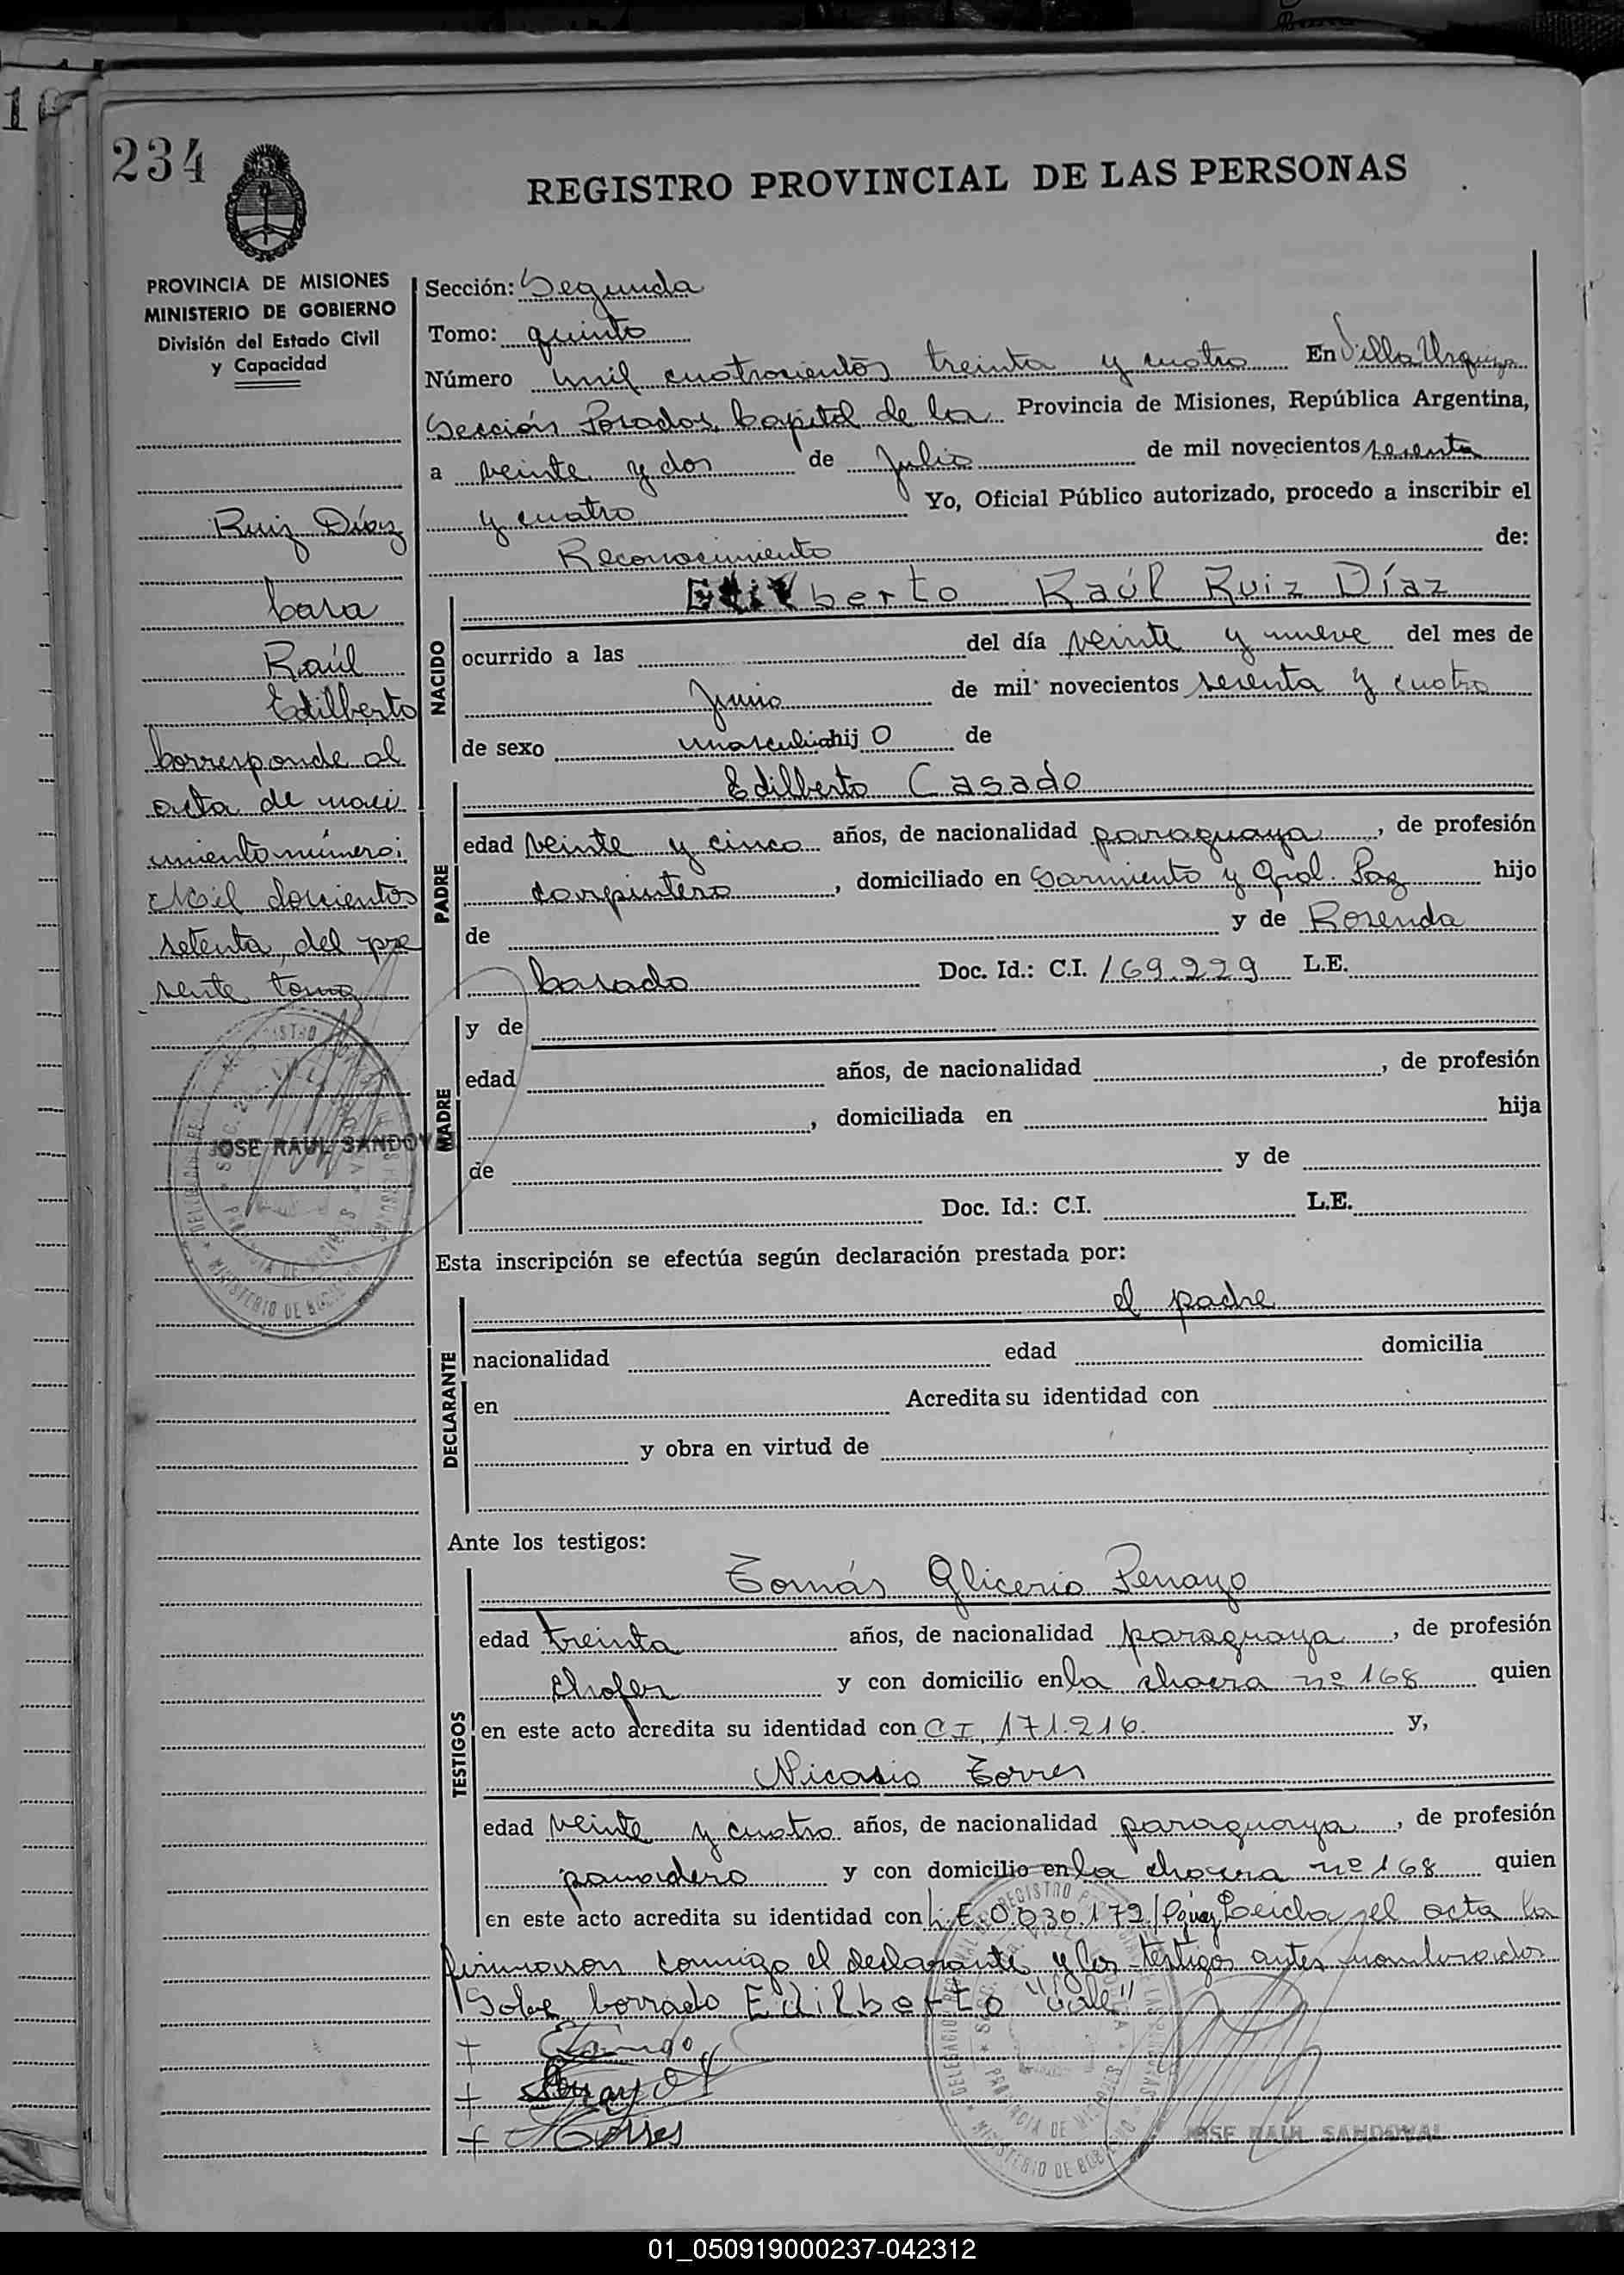 234
REGISTRO PROVINCIAL DE LAS PERSONAS
PROVINCIA DE MISIONES
MINISTERIO DE GOBIERNO
División del Estado Civil
y Capacidad
Ruiz Díaz
Casa
Raúl
Edilberto
Corresponde al
acta de naci
miento número:
Mil doscientos
setenta, del pre
sente tomo
JOSE RAUL SANDOVAL
Sección: Segunda
Tomo: quinto
Número mil cuatrocientos treinta y cuatro En Villa Urquiza
Sección Posadas, Capital de la Provincia de Misiones, República Argentina,
a veinte y dos de Julio de mil novecientos sesenta
y cuatro Yo, Oficial Público autorizado, procedo a inscribir el
Reconocimiento de:
NACIDO
Edilberto Raúl Ruiz Díaz
ocurrido a las del día veinte y nueve del mes de
junio de mil novecientos sesenta y cuatro
de sexo masculino hijo de
PADRE
Edilberto Casado
edad veinte y cinco años, de nacionalidad paraguaya, de profesión
carpintero, domiciliado en Sarmiento y Gral. Paz hijo
de y de Rosenda
Casado Doc. Id.: C.I. 169.229 L.E.
MADRE
y de
edad años, de nacionalidad , de profesión
, domiciliada en hija
de y de
Doc. Id.: C.I. L.E.
Esta inscripción se efectúa según declaración prestada por:
DECLARANTE
el padre
nacionalidad edad domicilia
en Acredita su identidad con
y obra en virtud de
Ante los testigos:
TESTIGOS
Tomás Glicerio Penayo
edad treinta años, de nacionalidad paraguaya, de profesión
chofer y con domicilio en la chacra nº 168 quien
en este acto acredita su identidad con C I 171.216. y,
Nicasio Torres
edad veinte y cuatro años, de nacionalidad paraguaya, de profesión
panadero y con domicilio en la chacra nº 168 quien
en este acto acredita su identidad con L.E. 0.030.179 Leida el acta la
firmaron conmigo el declarante y los testigos antes nombrados
Sobre borrado Edilberto "vale"
Penayo
Torres
JOSE RAUL SANDOVAL
01_050919000237-042312